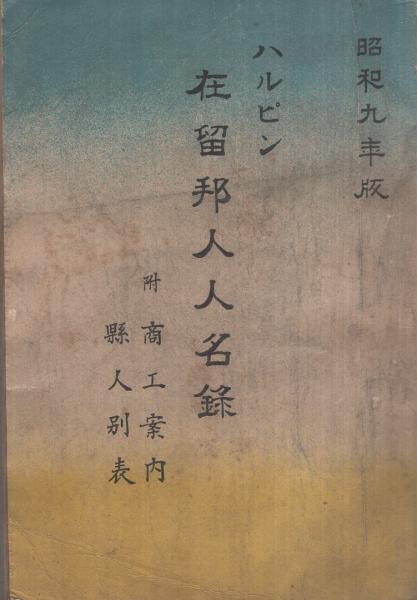 昭和九年版
ハルピン
在留邦人人名錄
附 商工案內
縣人別表